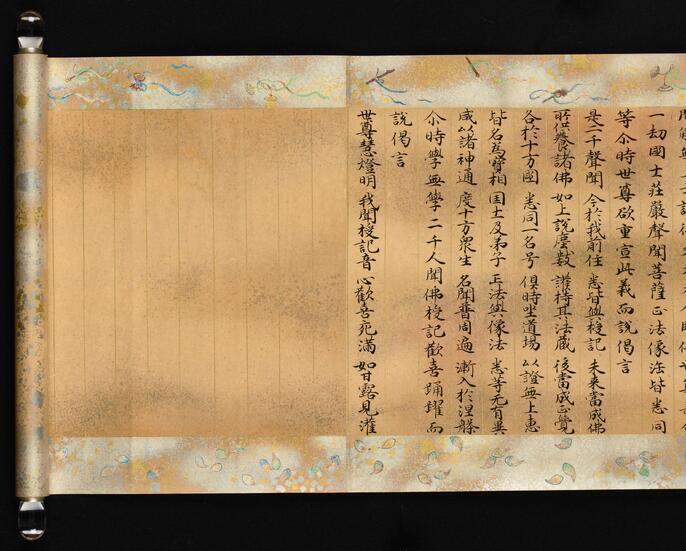 一劫國土莊嚴聲聞菩薩正法像法皆悉同
等尒時世尊欲重宣此義而說偈言
是二千聲聞 今於我前住 悉皆與授記 未来當成佛
所供養諸佛 如上說塵數 護持其法藏 後當成正覺
各於十方國 悉同一名号 俱時坐道場 以證無上惠
皆名為寶相 国土及弟子 正法與像法 悉等无有異
咸以諸神通 度十方衆生 名聞普周遍 漸入於涅槃
尒時學無學二千人聞佛授記歡喜踊躍而
說偈言
世尊慧燈明 我聞授記音 心歡喜充滿 如甘露見灌